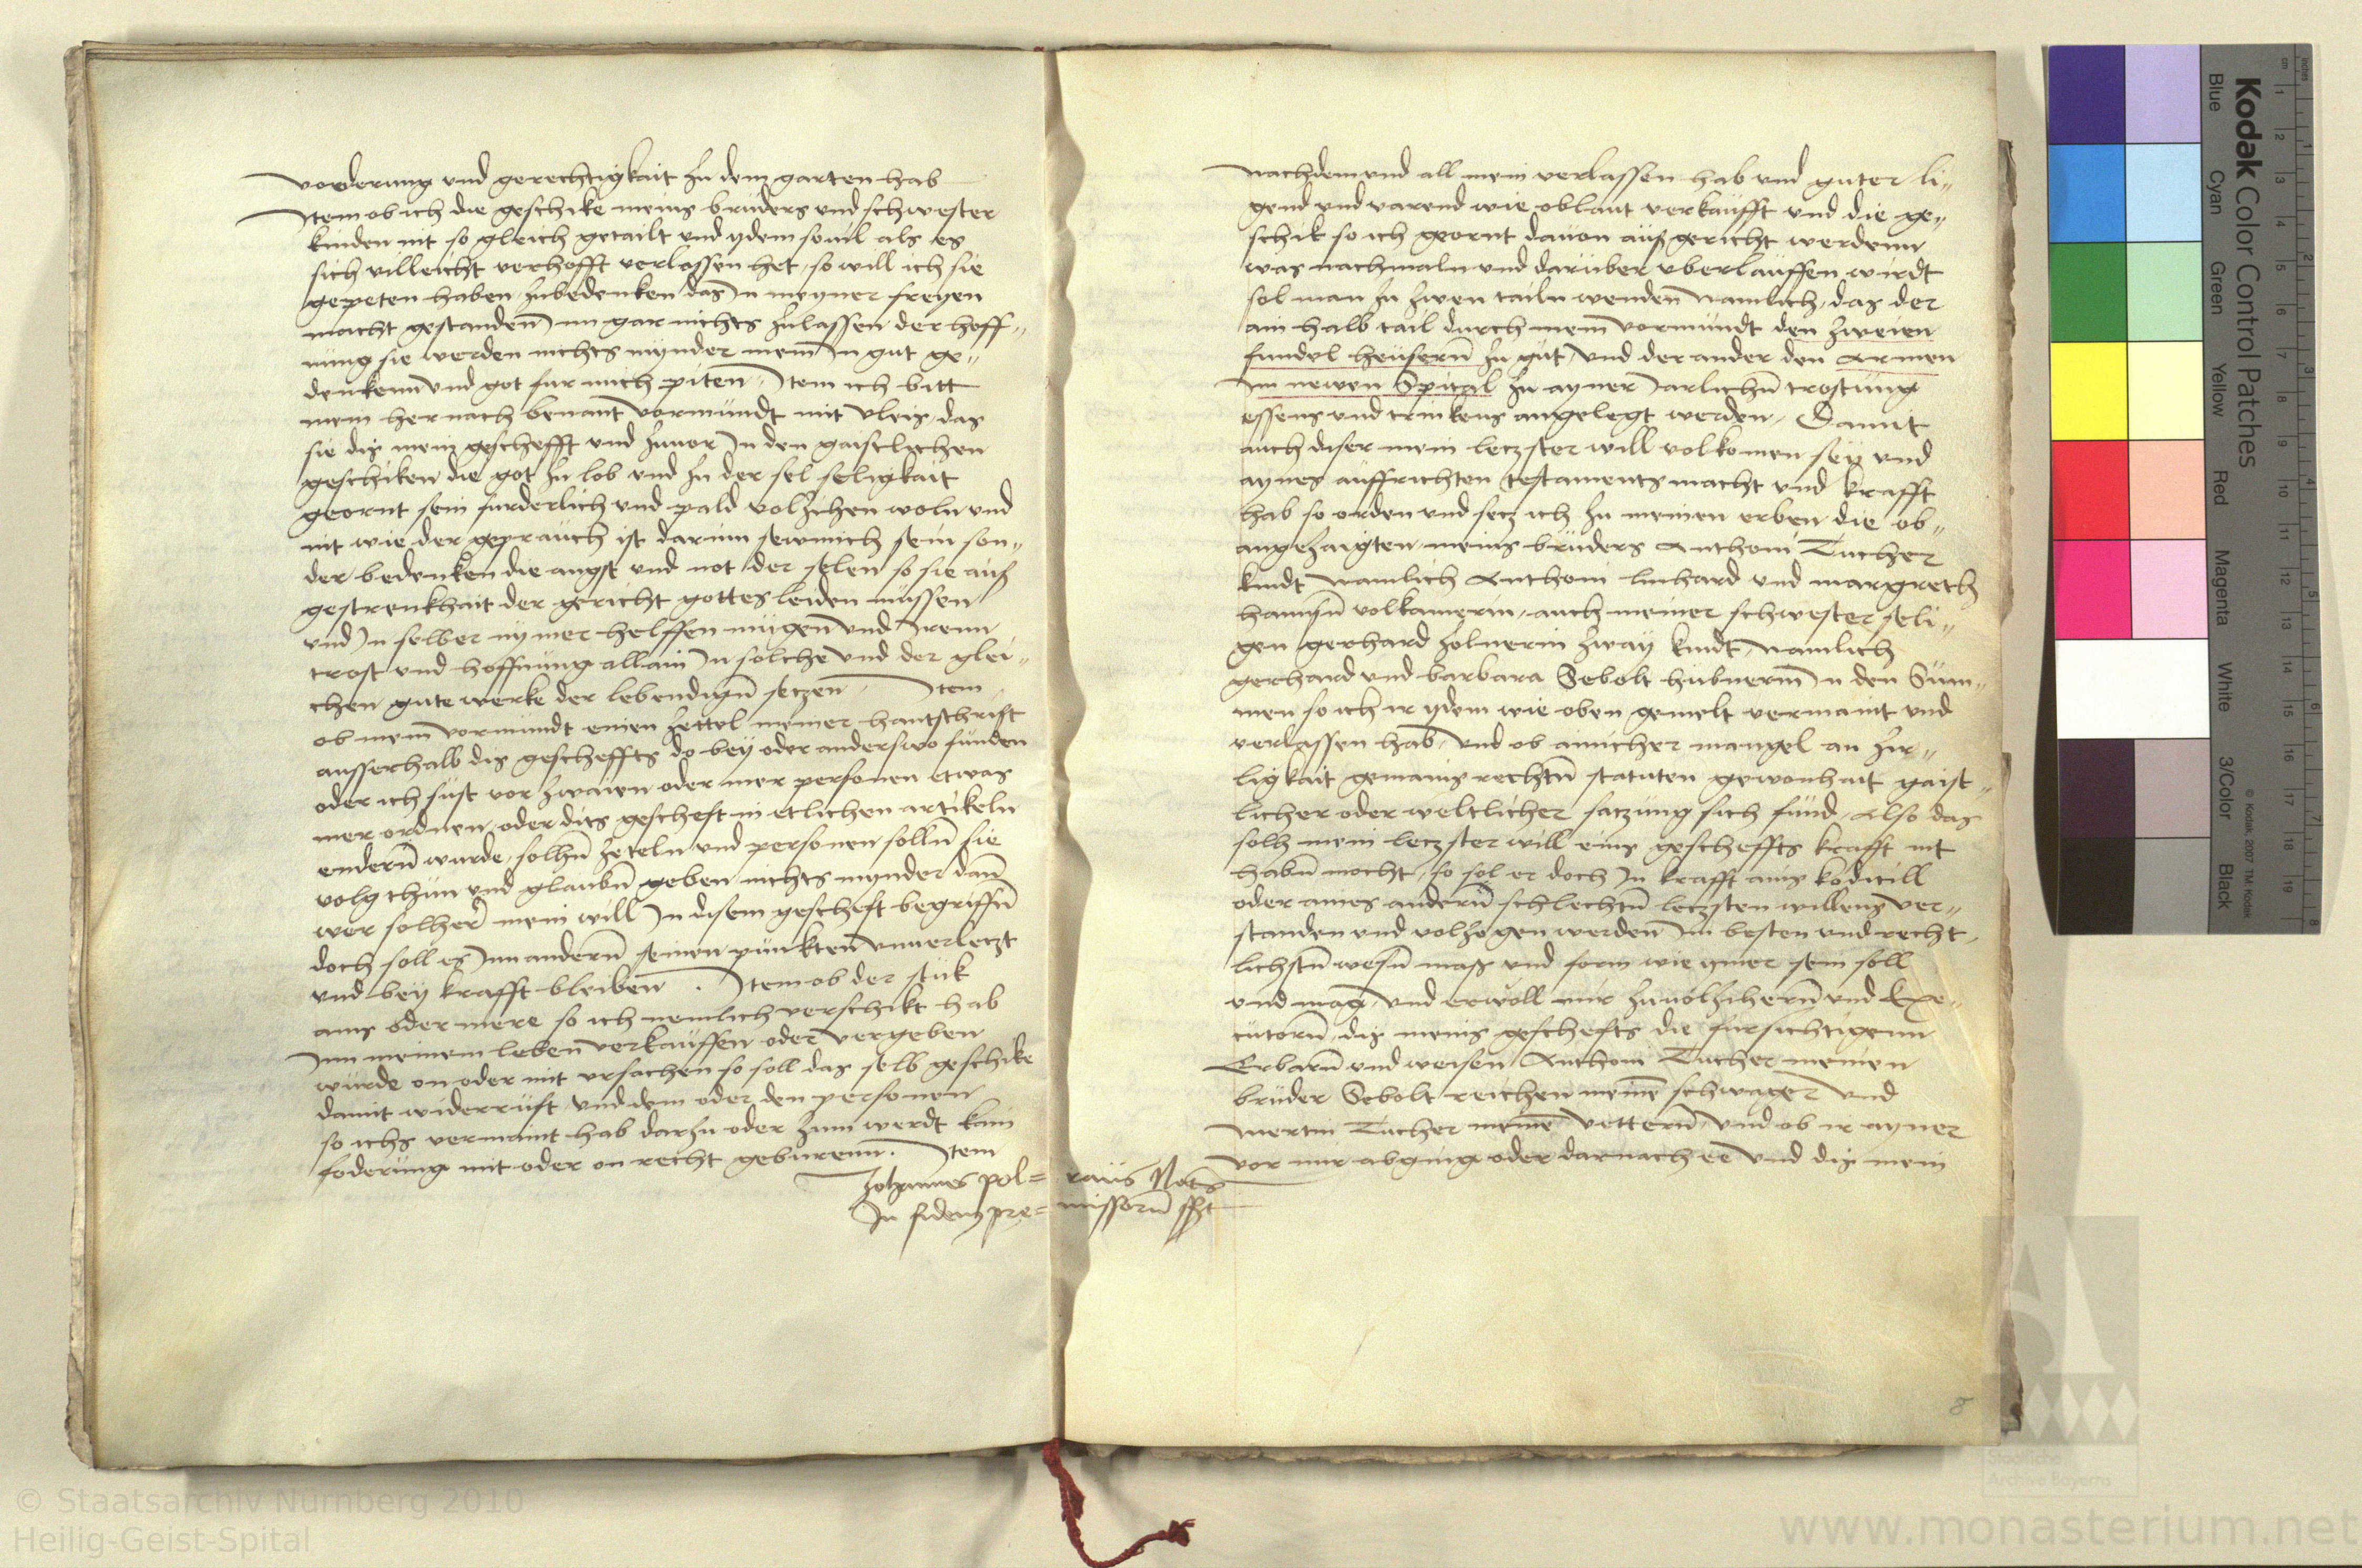 vorderung und gerechtigkait zu dem garten hab
Item ob ich die geschike meins bruders und schwester
kinden nit so gleich getailt und ydem souil als es
sich villeicht verhofft verlassen het, so will ich sie
gepeten haben zubedenken das In meyner freyen
macht gestanden im gar nichts zulassen der hoff„
nung sie werden nichts mynder mein In gut ge„
denkenn und got fur mich piten. Item ich bitt
mein hernach benant vormundt mit vleis, das
sie dis mein geschefft und zuuor In den gaistlichen
geschiken die got zu lob und zu der sel seligkait
geornt sein furderlich und pald volzihen woln und
nit wie der geprauch ist darinn sewmich sein son„
der bedenken die angst und not der selen so sie auß
gestrenkhait der gericht gottes leiden müssen
und In selber nymer helffen mügen und Irenn
trost und hoffnung allain In solche und der glei„
chen gute werke der lebendign setzen. Item
ob mein vormundt einen zettel meiner hantschrift
ausserhalb dis gescheffts do bey oder anderswo funden
oder ich sust vor zwaien oder mer personen etwas
mer ordnen, oder dits gescheft in etlichen artikeln
endern wurde, solhn zeteln und personen solln sie
volg thun und glaubn geben nichts mynder dan
wer solher mein will In disem gescheft begriffn
doch soll es Inn andern seinen punkten unuerletzt
und bey krafft bleiben. Item ob der stuk
ains oder mere so ich nemlich verschikt hab
Inn meinem leben verkauffen oder vergeben
wurde on oder mit ursachen so soll das selb geschike
damit widerruft und dem oder den personen
so ichs vermaint hab darzu oder zum werdt kain
foderung mit oder on recht geburenn. Item
nachdem und all mein verlassen hab und guter li„
gend und varend wie oblaut verkaufft und die ge„
schik so ich geornt dauon auß gericht werdenn
was nachmaln und darüber uberlauffen wirdt
sol man zu zwen tailn wenden namlich, das der
ain halb tail durch mein vormundt den zweien
fundel heusern zu gut, und der ander den Armen
Im newen Spital zu ayner Jarlichn trostung
essens und trinkens angelegt werden. Damit
auch diser mein letzster will volkomen sey und
aynes auffrichten testaments macht und krafft
hab so orden und setz ich zu meinen erben die ob„
angezaigten meins bruders Anthoni Tucher
kindt namlich Anthoni linhard und margreth
hannsn volkamerin, auch meiner schwester seli„
gen gerhard zolnerin zway kindt, namlich
gerhard und barbara Sebolt hubnerin In den Sum„
men so ich ir ydem wie oben gemelt vermaint und
verlassen hab, und ob ainicher mangel an zir„
ligkait gemains rechtn statuten gewonhait gaist„
licher oder weltlicher satzung sich fund, Also das
solh mein letzster will eins gescheffts krafft nit
habn mocht, so sol er doch In krafft ains kodicill
oder aines andern schlechtn letzsten willens ver„
standen und volzogen werden Im besten und recht„
lichstn wesn mass und form wie ymer sein soll
und mag, und erwoll mir zuuolzihern und Exe„
cutorn, dis meins gescheffts die fursichtigenn
Erbarn und weisen Anthoni Tucher meinen
bruder Sebolt reichen meine schwager und
Mertin Tucher meine vettern, und ob ir ayner
vor mir abging oder darnach ee und dis mein
Johannes pol= raüs Nots
In fidem pre= missorum sst
8
Kodak Color Control Patches
Blue Cyan Green Yellow Red Magenta White 3/Color Black
© Kodak, 2007 TM: Kodak
© Staatsarchiv Nürnberg 2010
Heilig-Geist-Spital
Staatliche
Archive Bayerns
www.monasterium.net